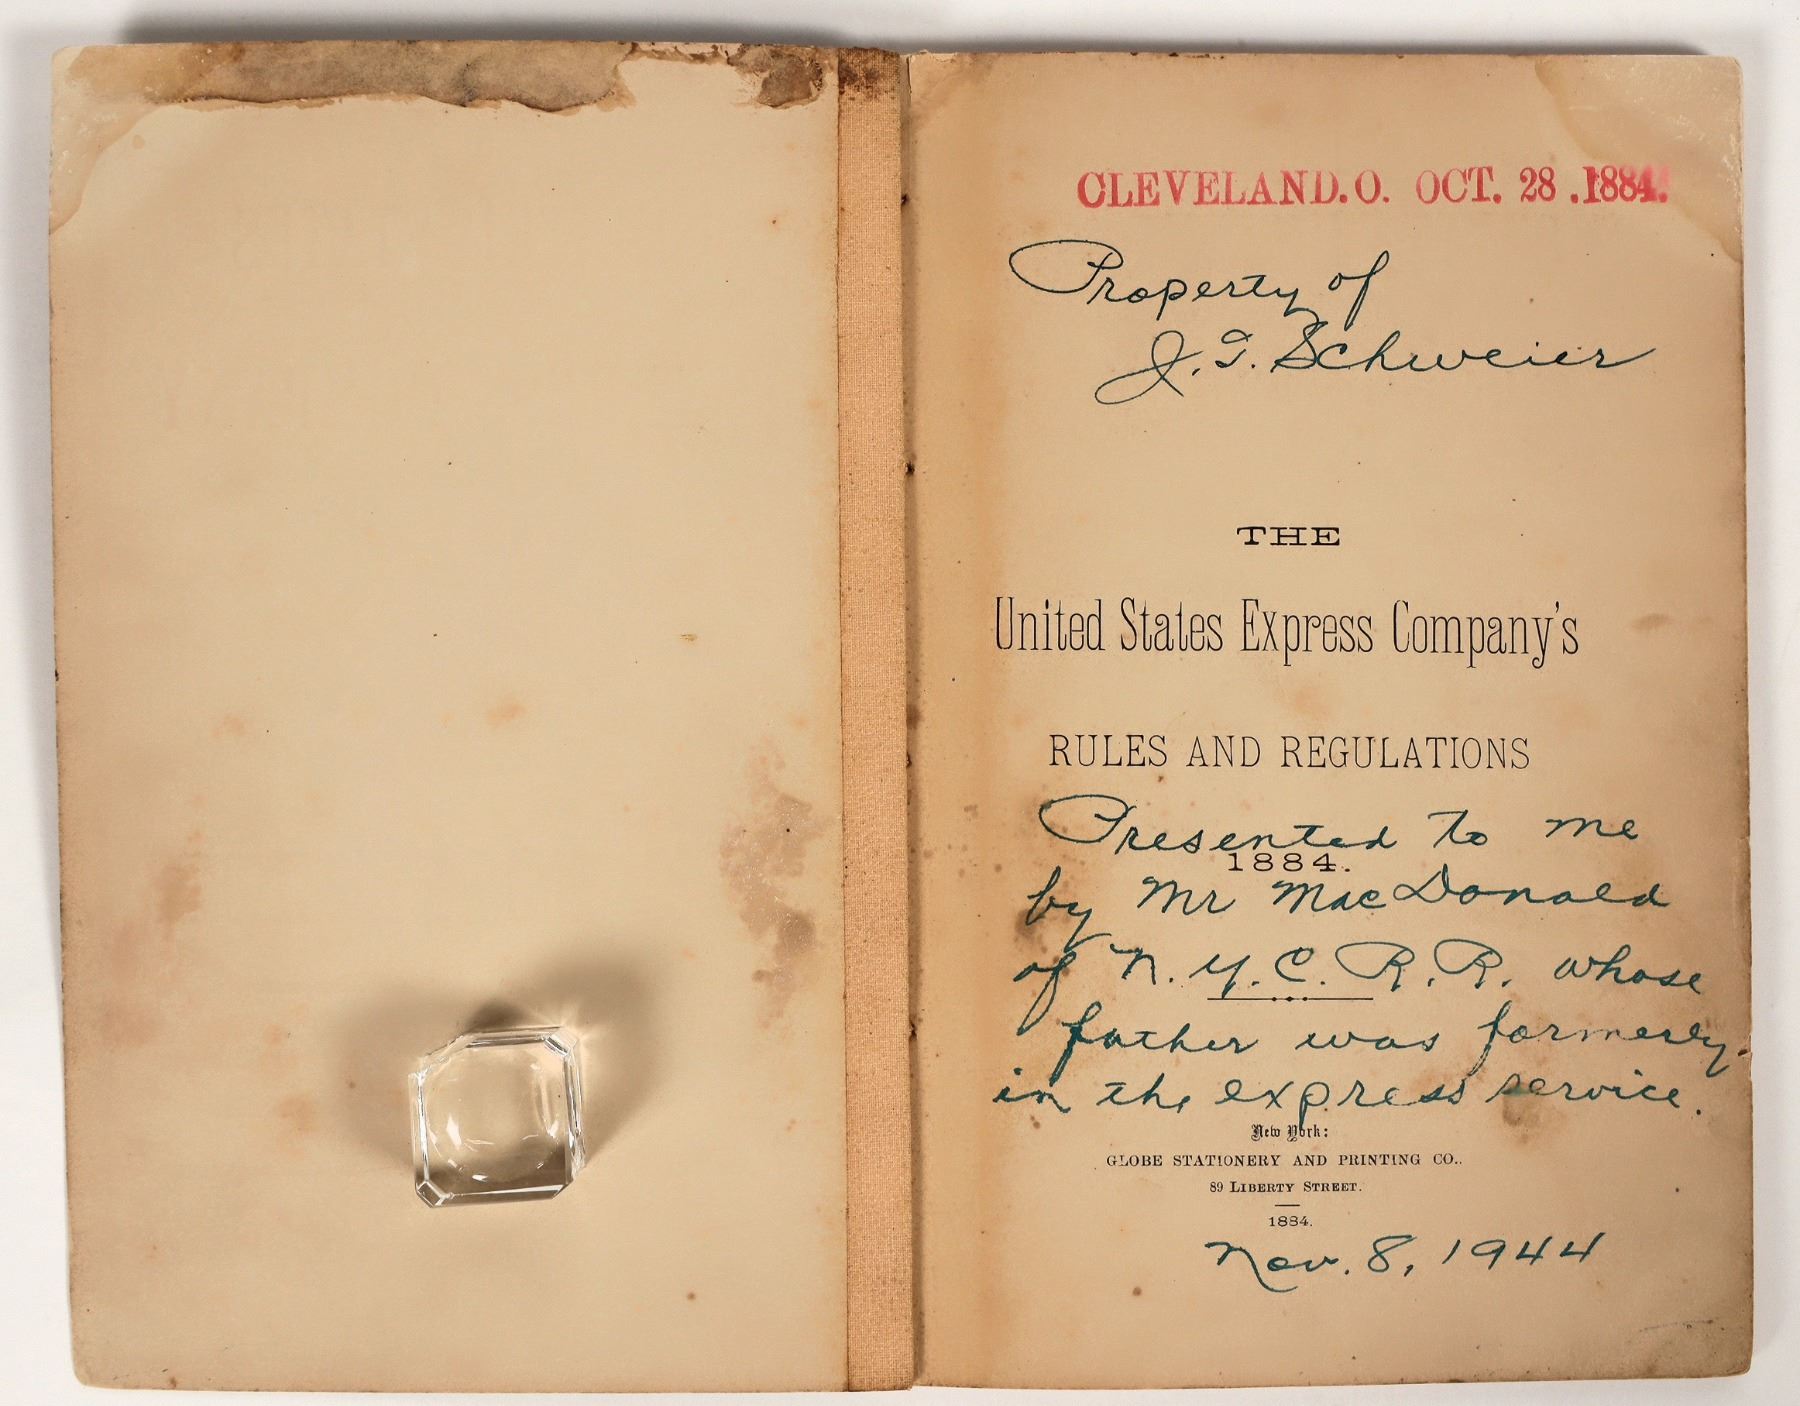 CLEVELAND. O. OCT. 28 .1884.
Property of
J. G. Schweier
THE
United States Express Company's
RULES AND REGULATIONS
Presented to me
1884.
by Mr MacDonald
of N.Y.C. R.R. whose
father was formerly
in the express service.
New York:
GLOBE STATIONERY AND PRINTING CO..
89 LIBERTY STREET.
1884.
Nov. 8, 1944